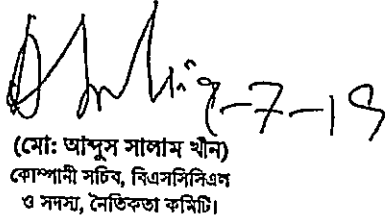 ২-7-19
(মো: আব্দুস সালাম খাঁন)
কোম্পানী সচিব, বিএসসিসিএল
ও সদস্য, নৈতিকতা কমিটি।